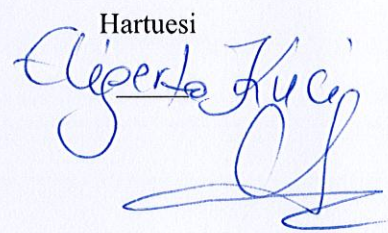 Hartuesi
Eligerta Kuci